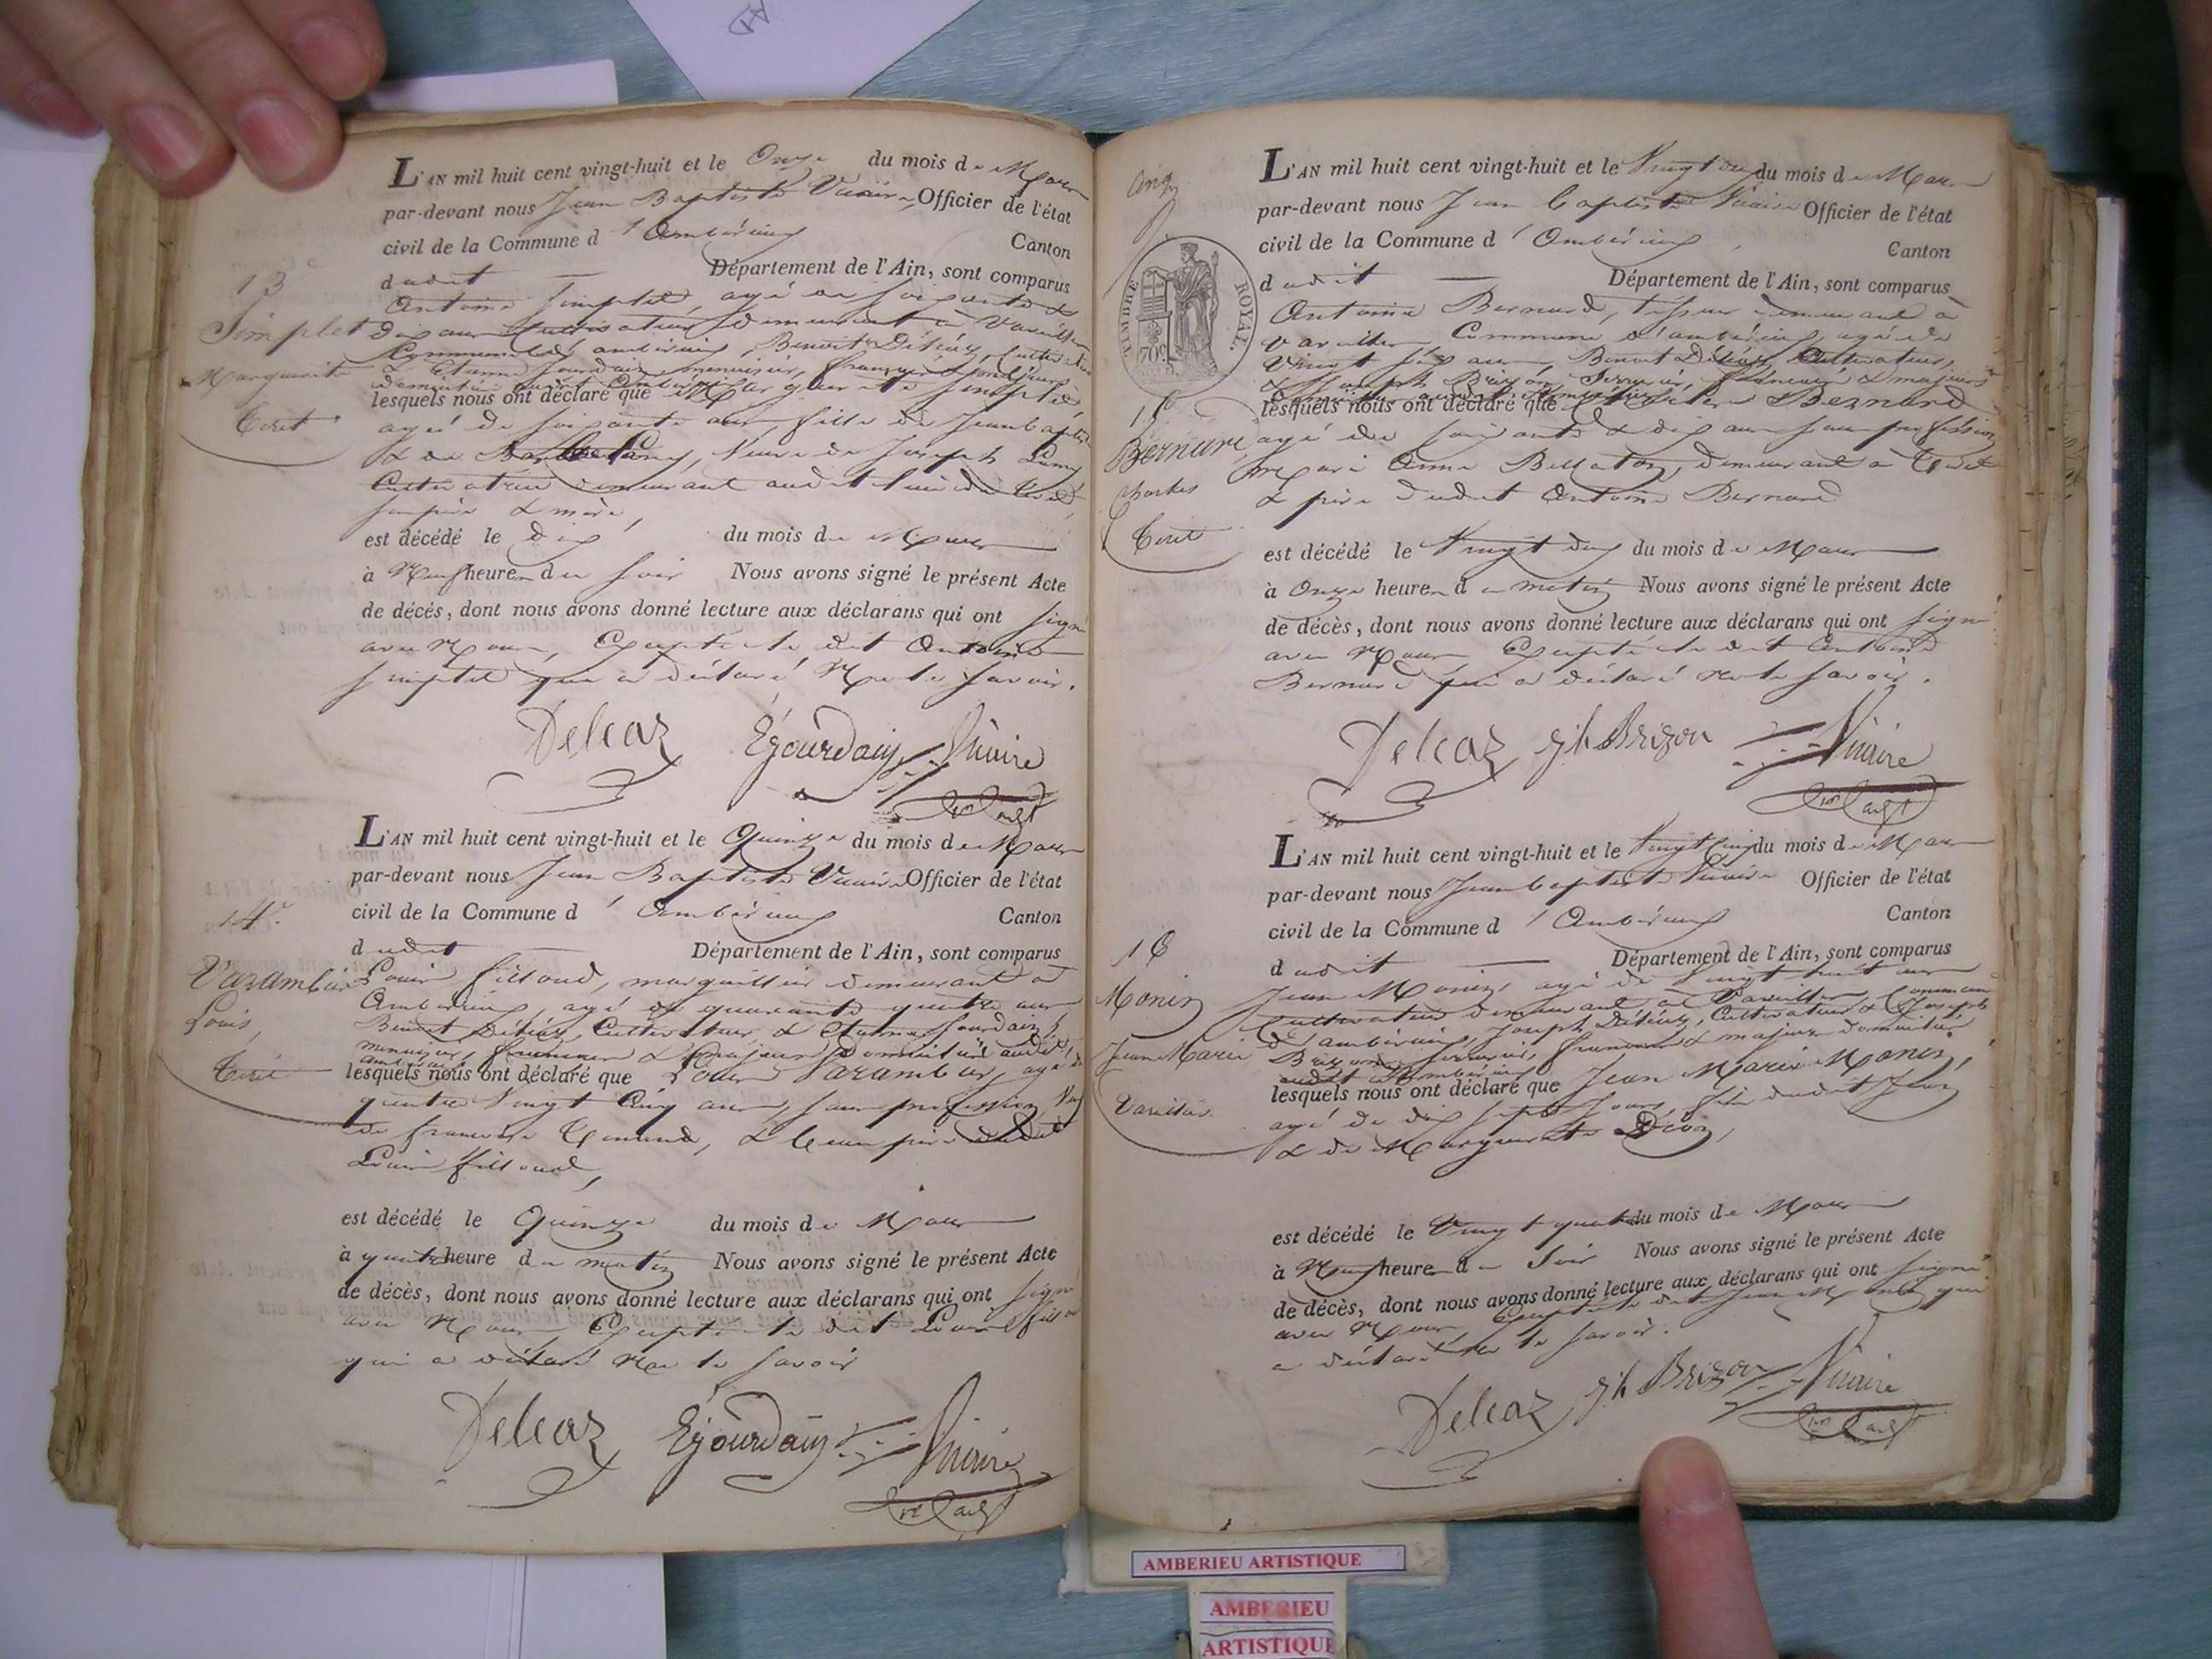 13
Simplet
Marguerite
Tiret
L'AN mil huit cent vingt-huit et le Onze du mois de Mars
par-devant nous Jean Baptiste Vicaire Officier de l'état
civil de la Commune d'Ambérieux Canton
dudit Département de l'Ain, sont comparus
Antoine Simplet, agé de soixante &
dix ans Cultivateur demeurant à Vareilles
Commune d'ambérieux, Benoit Cultivateur
& Etienne Jourdain menuisier, français & majeurs
lesquels nous ont déclaré que Marguerite Simplet,
agée de soixante ans, fille de Jean baptiste
& de Lamy, Veuve de Joseph Lamy
Cultivatrice demeurant audit lieu de Tiret,
ses père & mère,
est décédé le dix du mois de Mars
à Neuf heures du soir Nous avons signé le présent Acte
de décès, dont nous avons donné lecture aux déclarans qui ont signé
avec Nous, Excepté le dit Antoine
Simplet qui a déclaré Ne le savoir.
Delcaz EJourdain Vicaire
14e
Varambier
Louis,
Tiret
L'AN mil huit cent vingt-huit et le Quinze du mois de Mars
par-devant nous Jean Baptiste Vicaire Officier de l'état
civil de la Commune d'Ambérieux Canton
dudit Département de l'Ain, sont comparus
Louis filloud, marguillier demeurant à
Ambérieux, agé de quarante quatre ans
Benoit Cultivateur, & Etienne Jourdain,
menuisier, français & majeurs Domiciliés audit
lesquels nous ont déclaré que Louis Varambier, agé de
quatre Vingt Cinq ans, sans profession,
de françoise, & beau père dudit
Louis filloud,
est décédé le Quinze du mois de Mars
à quatre heure du matin Nous avons signé le présent Acte
de décès, dont nous avons donné lecture aux déclarans qui ont signé
avec Nous Excepté le dit Louis
qui a déclaré Ne le savoir
Delcaz EJourdain Vicaire
TIMBRE ROYAL.
70c
15e
Bernard
Charles
Tiret
L'AN mil huit cent vingt-huit et le Vingt deux du mois de Mars
par-devant nous Jean baptiste Vicaire Officier de l'état
civil de la Commune d'Ambérieux, Canton
dudit Département de l'Ain, sont comparus
Antoine Bernard, tisseur demeurant à
Vareilles Commune d'ambérieux, agé de
Vingt six ans, Benoit Cultivateur,
& Joseph Brizon Serrurier, français & majeurs
lesquels nous ont déclaré que Charles Bernard
agé de soixante & dix ans sans profession
Mari Anne, demeurant à Tiret
& père dudit Antoine Bernard
est décédé le Vingt deux du mois de Mars
à Onze heures du matin Nous avons signé le présent Acte
de décès, dont nous avons donné lecture aux déclarans qui ont signé
avec Nous Excepté le dit Antoine
Bernard qui a déclaré Ne le savoir.
Delcaz jh Brizon Vicaire
16
Monin
Jean Marie
Vareilles
L'AN mil huit cent vingt-huit et le Vingt Cinq du mois de Mars
par-devant nous Jean baptiste Vicaire Officier de l'état
civil de la Commune d'Ambérieux Canton
dudit Département de l'Ain, sont comparus
Jean Monin, agé de Vingt huit ans
Cultivateur demeurant à Vareilles Commune
d'ambérieux, Joseph Cultivateur & Joseph
Brizon, serrurier, français & majeurs domiciliés
audit Ambérieux
lesquels nous ont déclaré que Jean Marie Monin,
agé de dix sept Jours, fils dudit Jean
& de Marguerite
est décédé le Vingt quatre du mois de Mars
à Neuf heures du Soir Nous avons signé le présent Acte
de décès, dont nous avons donné lecture aux déclarans qui ont signé
avec Nous Excepté le dit Jean Monin qui
a déclaré Ne le savoir.
Delcaz jh Brizon Vicaire
AMBERIEU ARTISTIQUE
AMBERIEU
ARTISTIQUE